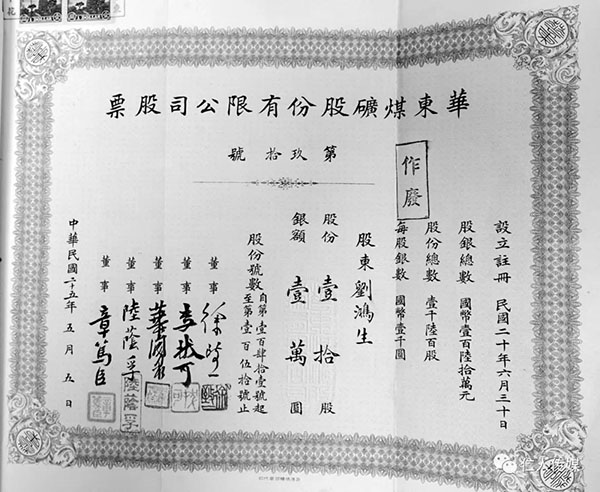 華東煤礦股份有限公司股票
第玖拾號
作廢
設立註冊 民國二十年六月三十日
股銀總數 國幣壹百陸拾萬元
股份總數 壹千陸百股
每股銀數 國幣壹千圓
股東劉鴻生
股份壹拾股
銀額壹萬圓
股份號數
自第壹百肆拾壹號起
至第壹百伍拾號止
董事 徐
董事 李拔可
董事 華
董事 陸蔭孚
陸蔭孚
董事 章篤臣
中華民國二十五年五月五日